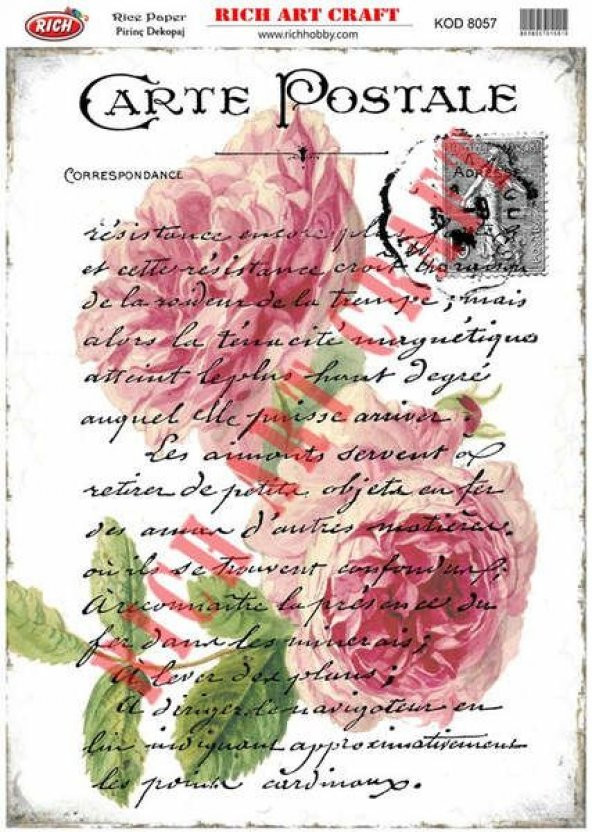 RICH
Rice Paper
Pirinç Dekopaj
RICH ART CRAFT
www.richhobby.com
KOD 8057
CARTE POSTALE
CORRESPONDANCE
ADRESSE
résistance encore plus
et cette résistance croît à raison
de la roideur de la trempe ; mais
alors la ténacité magnétique
atteint le plus haut degré
auquel elle puisse arriver.
Les aimants servent à
retirer de petits objets en fer
des amas d'autres matières,
où ils se trouvent confondus ;
À reconnaître la présence du
fer dans les minerais ;
A lever des plans ;
A diriger le navigateur en
lui indiquant approximativement
les points cardinaux.
RICH ART CRAFT